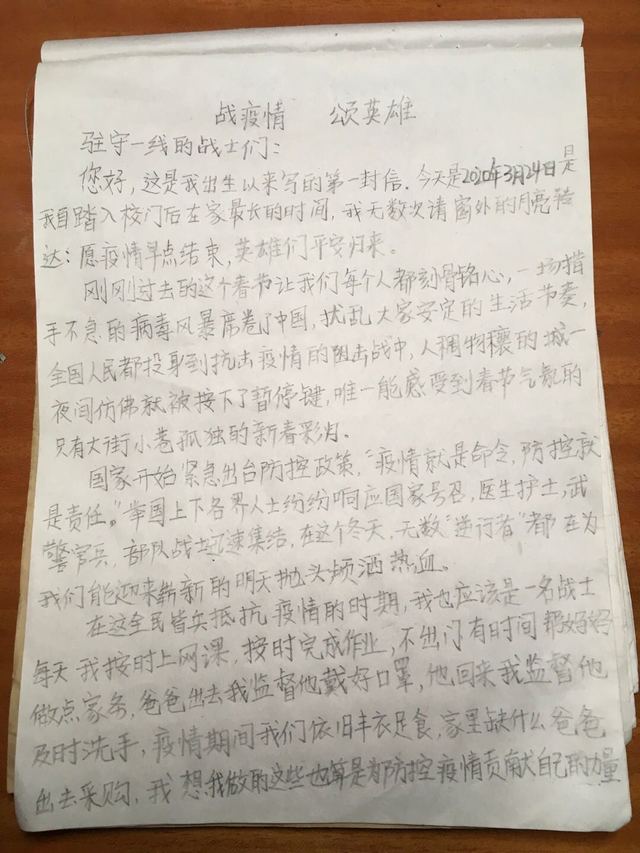 战疫情 颂英雄
驻守一线的战士们:
您好,这是我出生以来写的第一封信.今天是2020年3月24日是
我自踏入校门后在家最长的时间,我无数次请窗外的月亮转
达:愿疫情早点结束,英雄们平安归来。
刚刚过去的这个春节让我们每个人都刻骨铭心,一场措
手不急的病毒风暴席卷了中国,扰乱大家安定的生活节奏,
全国人民都投身到抗击疫情的阻击战中,人稠物穰的城一
夜间仿佛就被按下了暂停键,唯一能感受到春节气氛的
只有大街小巷孤独的新春彩灯.
国家开始紧急出台防控政策,“疫情就是命令,防控就
是责任。”举国上下各界人士纷纷响应国家号召,医生护士,武
警官兵,部队战士迅速集结,在这个冬天,无数“逆行者”都在为
我们能迎来崭新的明天抛头颅洒热血.
在这全民皆兵抵抗疫情的时期,我也应该是一名战士
每天我按时上网课,按时完成作业,不出门有时间帮好好
做点家务,爸爸出去我监督他戴好口罩,他回来我监督他
及时洗手,疫情期间我们依旧丰衣足食,家里缺什么爸爸
出去采购,我想我做的这些也算是为防控疫情贡献自己的力量